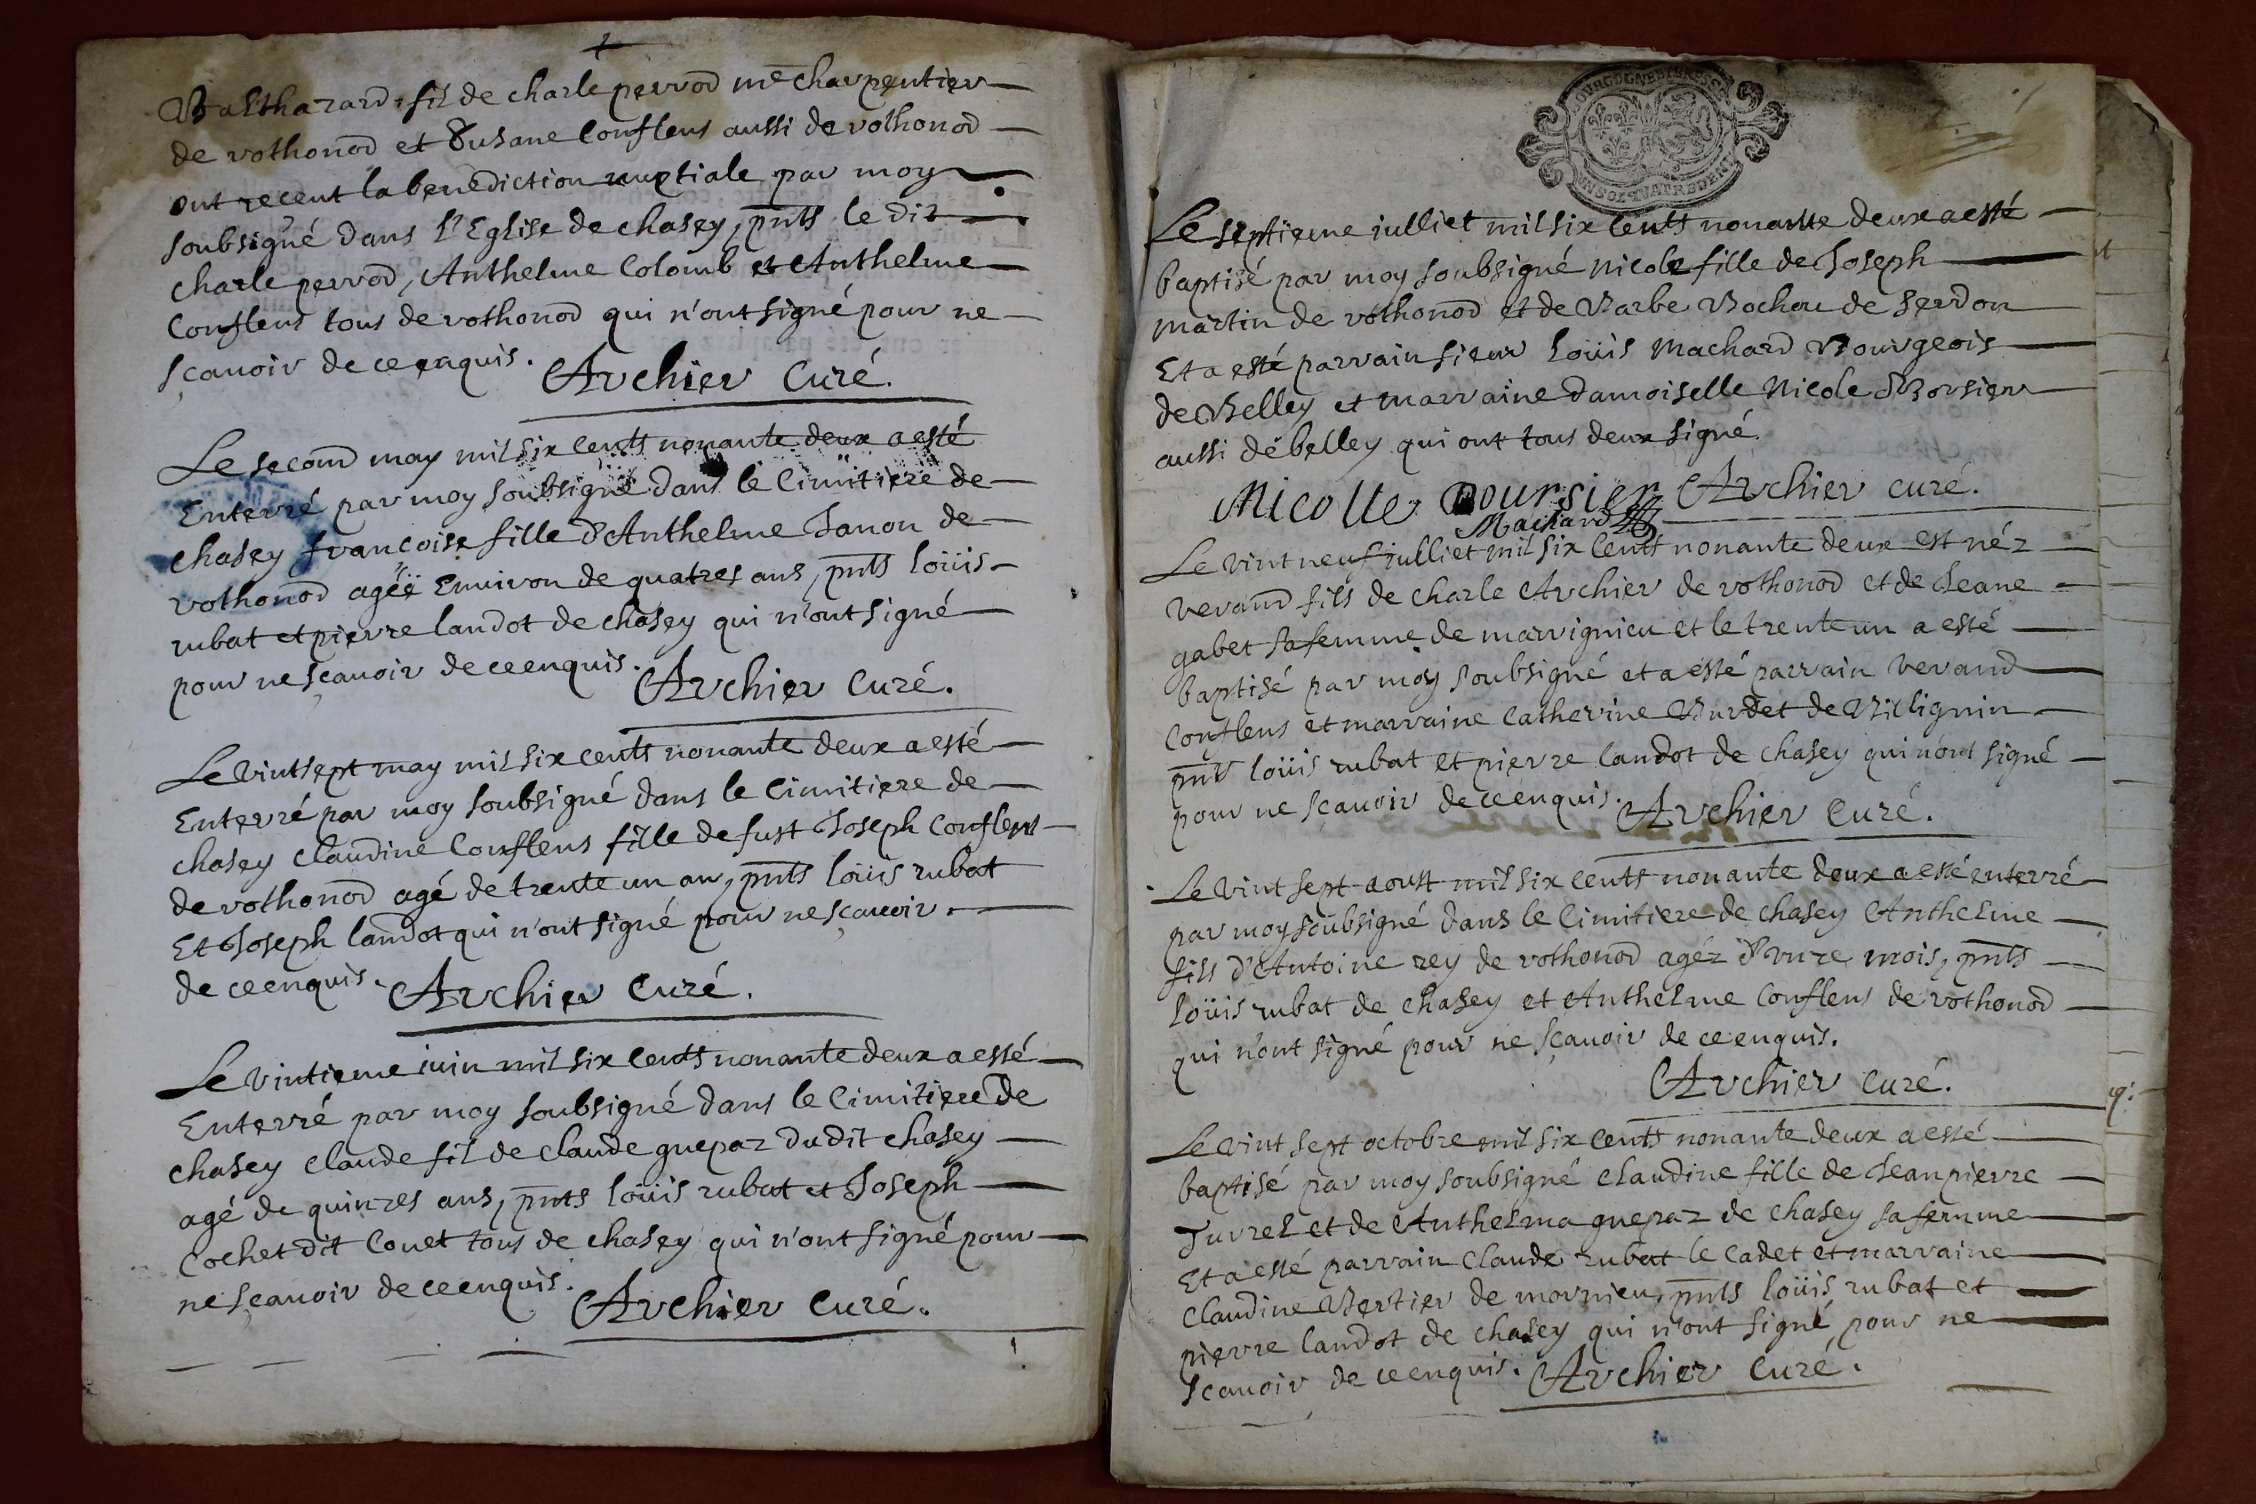 Balthazard fil de charle perrod me charpentier
de vothonod et Susane Conflens aussi de vothonod
ont receut la benediction nuptiale par moy
soubsigné dans l'Eglise de chasey, pnts le dit
charle perrod, Anthelme Colomb et Anthelme
Conflens tous de vothonod qui n'ont signé pour ne
sçauoir de ce enquis. Archier Curé.
Le second may mil six cents nonante deux a esté
Enterré par moy soubsigné dans le Cimitiere de
chasey francoise fille d'Anthelme Janon de
vothonod agéë Enuiron de quatres ans, pnts loüis
rubat et pierre landot de chasey qui n'ont signé
pour ne sçauoir de ce enquis. Archier Curé.
Le vint sept may mil six cents nonante deux a esté
Enterré par moy soubsigné dans le Cimitiere de
chasey Claudine Conflens fille de fust Joseph Conflens
de vothonod agé de trente un an, pnts loüis rubat
Et Joseph landot qui n'ont signé pour ne sçauoir
de ce enquis. Archier Curé.
Le vintieme iuin mil six cents nonante deux a essé
Enterré par moy soubsigné dans le Cimitiere de
chasey Claude fil de Claude guepaz dudit chasey
agé de quinzes ans, pnts loüis rubat et Joseph
Cochet dit Couet tous de chasey qui n'ont signé pour
ne sçauoir de ce enquis. Archier Curé.
BOURGOGNE BRESSE
QUATRE DEN
Le septieme iulliet mil six cents nonante deux a esté
baptisé par moy soubsigné Nicole fille de Joseph
martin de vothonod et de Barbe Bochou de serdon
Et a esté parrain sieur Loüis Machard Bourgeois
de Belley et marraine damoiselle Nicole Borsier
aussi de belley qui ont tous deux signé.
Nicolle Boursier Archier curé.
Machard
Le vint neuf iulliet mil six cents nonante deux est néz
verand fils de charle Archier de vothonod et de Jeane
gabet sa femme de marignieu et le trente un a esté
baptisé par moy soubsigné et a esté parrain verand
Conflens et marraine Catherine Burdet de Billignin
pnts loüis rubat et pierre landot de chasey qui n'ont signé
pour ne sçauoir de ce enquis. Archier Curé.
Le vint sept aoust mil six cents nonante deux a esté enterré
par moy soubsigné dans le Cimitiere de chasey Anthelme
fils d'Antoine rey de vothonod agéz d'vnze mois, pnts
loüis rubat de chasey et Anthelme Conflens de vothonod
qui n'ont signé pour ne sçauoir de ce enquis.
Archier curé.
Le vint sept octobre mil six cents nonante deux a essé
baptisé par moy soubsigné Claudine fille de Jean pierre
Juvrel et de Anthelma guepaz de chasey sa femme
Et a esté parrain Claude rubat le Cadet et marraine
Claudine Bertier de mornieu, pnts loüis rubat et
pierre landot de chasey qui n'ont signé pour ne
scauoir de ce enquis. Archier Curé.